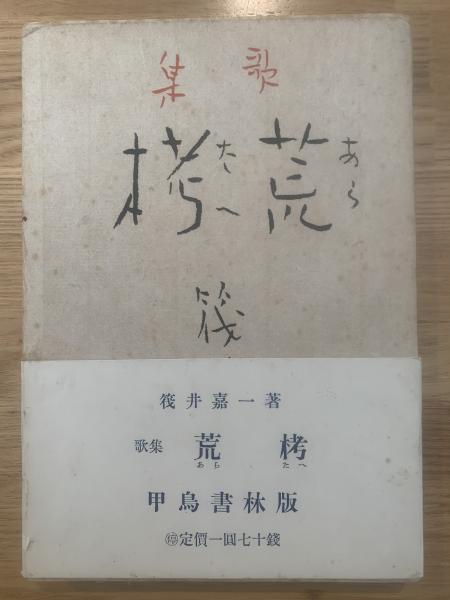 歌集
荒栲
あらたへ
筏
筏井嘉一著
歌集 荒栲
あら たへ
甲鳥書林版
停定價一圓七十錢